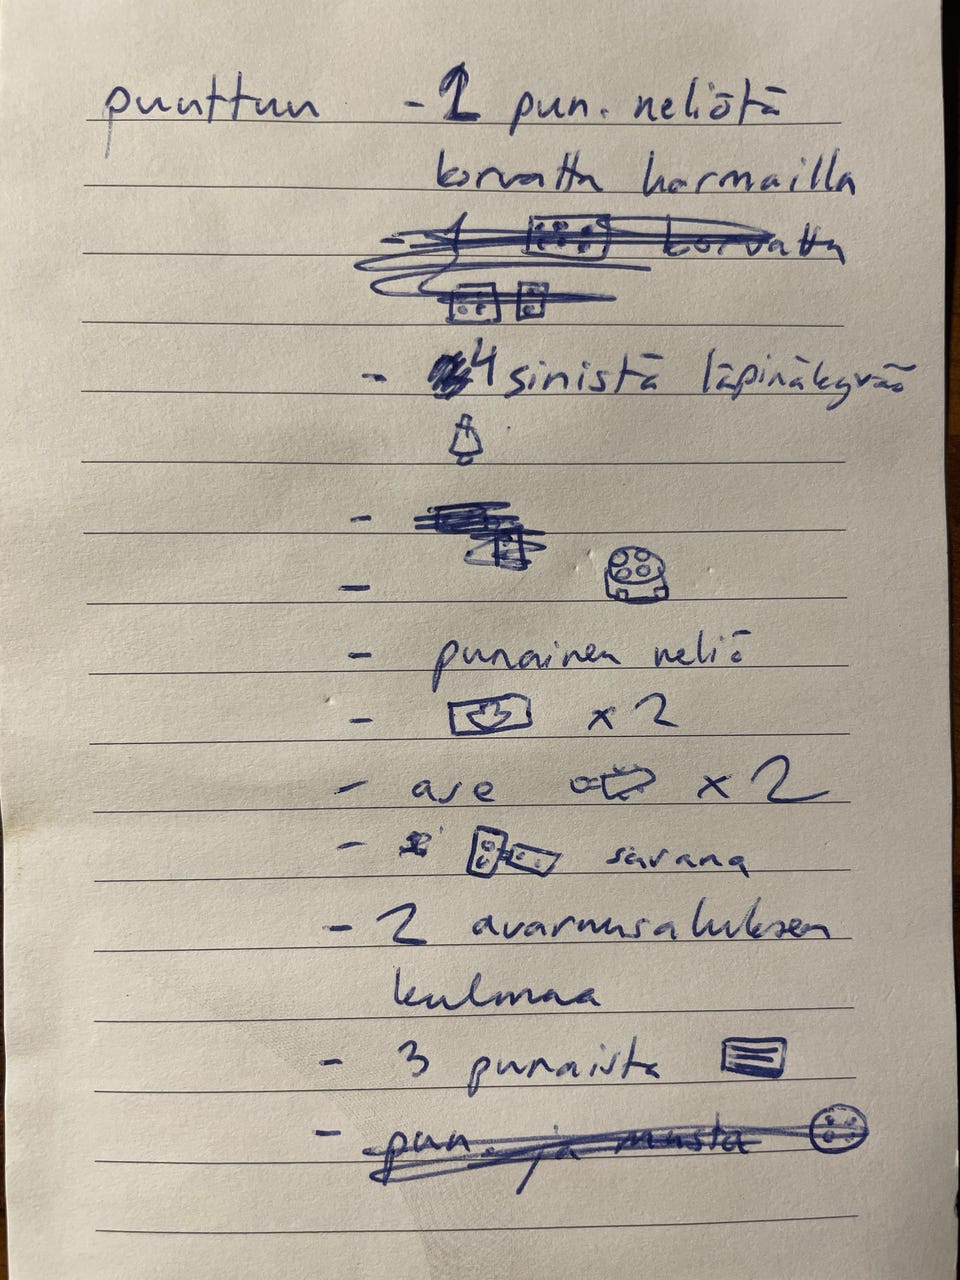 puuttuu - 2 pun. neliötä
korvattu harmailla
- 1 korvattu
- 4 sinistä läpinäkyvää
-
-
- punainen neliö
- x 2
- ase x 2
- sarana
- 2 avaruusaluksen
kulmaa
- 3 punaista
- pun. ja musta